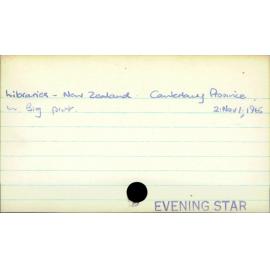 Libraries - New Zealand. Canterbury Province.
w big pict. 2 Nov 1, 1965
EVENING STAR